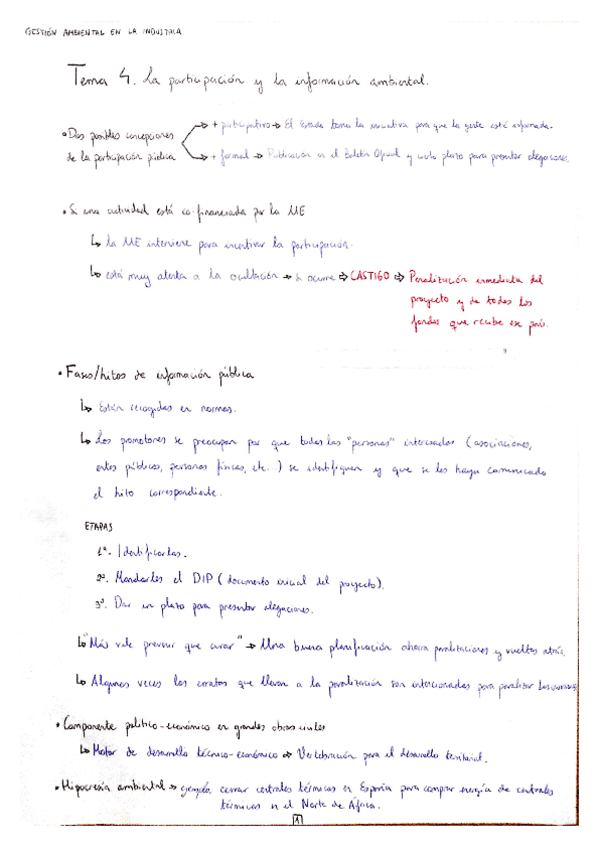 GESTIÓN AMBIENTAL EN LA INDUSTRIA
Tema 4. La participación y la información ambiental.
• Dos posibles concepciones de la participación pública
→ + participativo → El Estado toma la iniciativa para que la gente esté informada.
→ + formal → Publicación en el Boletín Oficial y cierto plazo para presentar alegaciones.
• Si una actividad está co-financiada por la UE
↳ la UE interviene para incentivar la participación.
↳ está muy atenta a la ocultación → si ocurre ⇒ CASTIGO ⇒ Paralización inmediata del
proyecto y de todos los
fondos que recibe ese país.
• Fases/hitos de información pública
↳ Están recogidas en normas.
↳ Los promotores se preocupan por que todas las "personas" interesadas (asociaciones,
entes públicos, personas físicas, etc...) se identifiquen y que se les haya comunicado
el hito correspondiente.
ETAPAS
1º. Identificarlas.
2º. Mandarles el DIP (documento inicial del proyecto).
3º. Dar un plazo para presentar alegaciones.
↳ "Más vale prevenir que curar" → Una buena planificación ahorra paralizaciones y vueltas atrás.
↳ Algunas veces los erratas que llevan a la paralización son intencionadas para paralizar
• Componente político-económico en grandes obras civiles
↳ Motor de desarrollo técnico-económico ⇒ Vertebración para el desarrollo territorial.
• Hipocresía ambiental → ejemplo, cerrar centrales térmicas en España para comprar energía de centrales
térmicas en el Norte de África.
1